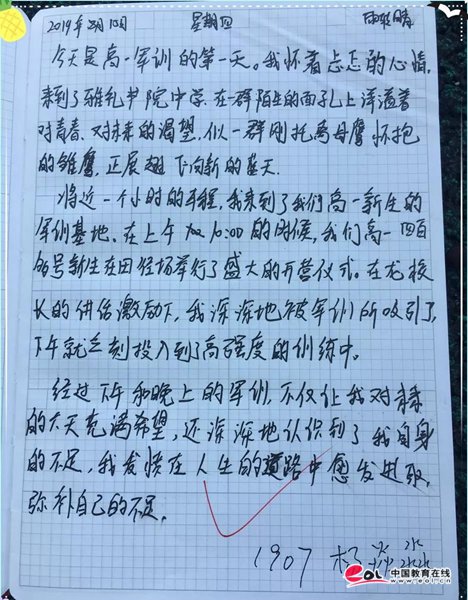 2019年8月15日 星期四 雨转晴
今天是高一军训的第一天。我怀着忐忑的心情,
来到了雅礼书院中学.在一群陌生的面孔上洋溢着
对青春、对未来的渴望,似一群刚托离母鹰怀抱
的雏鹰,正展翅飞向新的蓝天.
将近一个小时的车程,我来到了我们高一新生的
军训基地.在上午10:00的时候,我们高一四百
多号新生在田径场举行了盛大的开营仪式.在龙校
长的讲话激励下,我深深地被军训所吸引了,
下午就立刻投入到了高强度的训练中.
经过下午和晚上的军训,不仅让我对未来
的六天充满希望,还深深地认识到了我自身
的不足,我发愤在人生的道路中愈发进取,
弥补自己的不足.
1907 杨
eol 中国教育在线
www.eol.cn